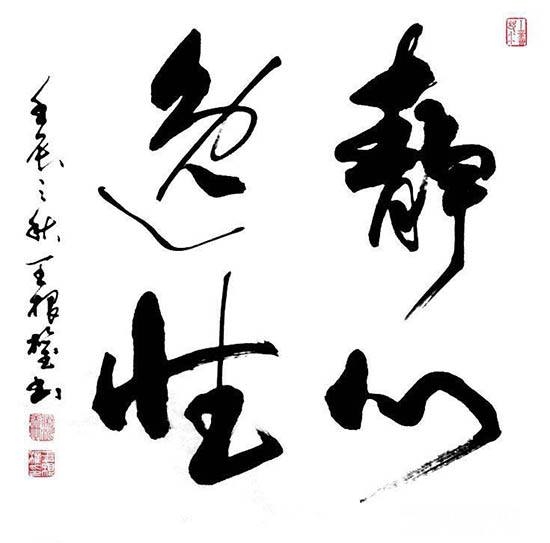 静心
逸性
壬辰之秋 王根權书